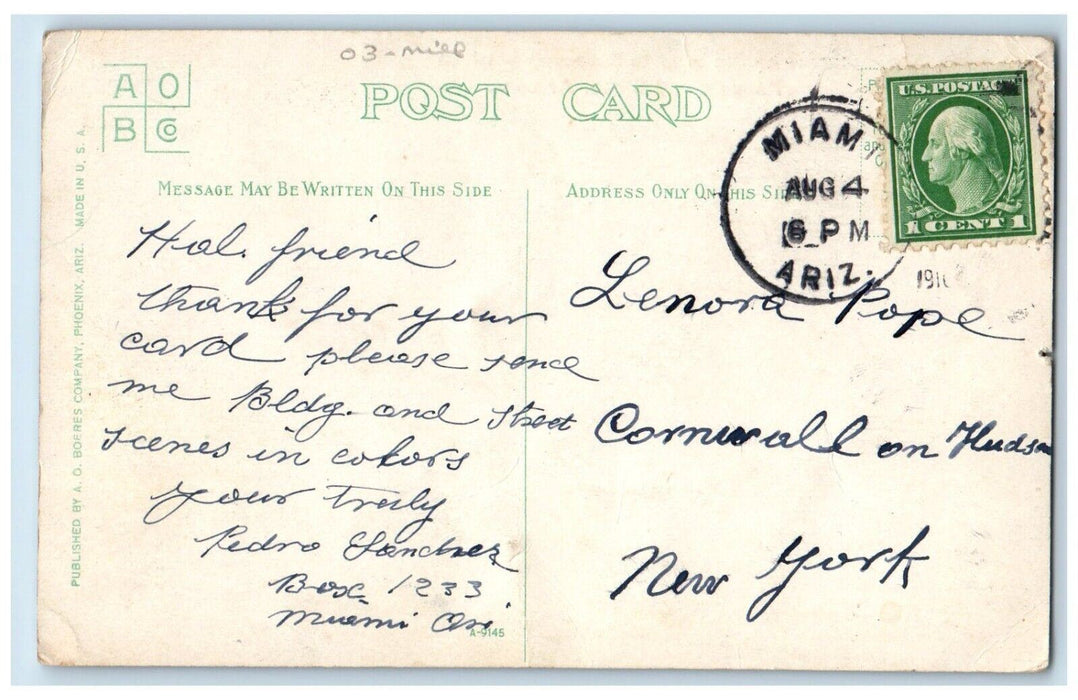 03-mill
A O
B Co
POST CARD
MESSAGE MAY BE WRITTEN ON THIS SIDE
ADDRESS ONLY ON THIS SIDE
U.S. POSTAGE
1 CENT 1
MIAMI
AUG 4
6 PM
ARIZ.
Hal. friend
thanks for your
card please send
me Bldg. and Street
scenes in colors
your truly
Pedro Sanchez
Box 1233
Miami Ari
Lenora Pope
Cornwall on Hudson
New York
A-9145
PUBLISHED BY A. O. BOERES COMPANY, PHOENIX, ARIZ. MADE IN U. S. A.